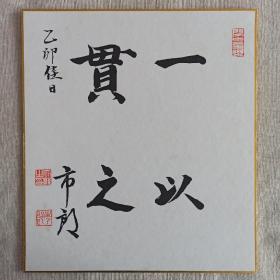 一以
貫之
乙卯佳日
市郎